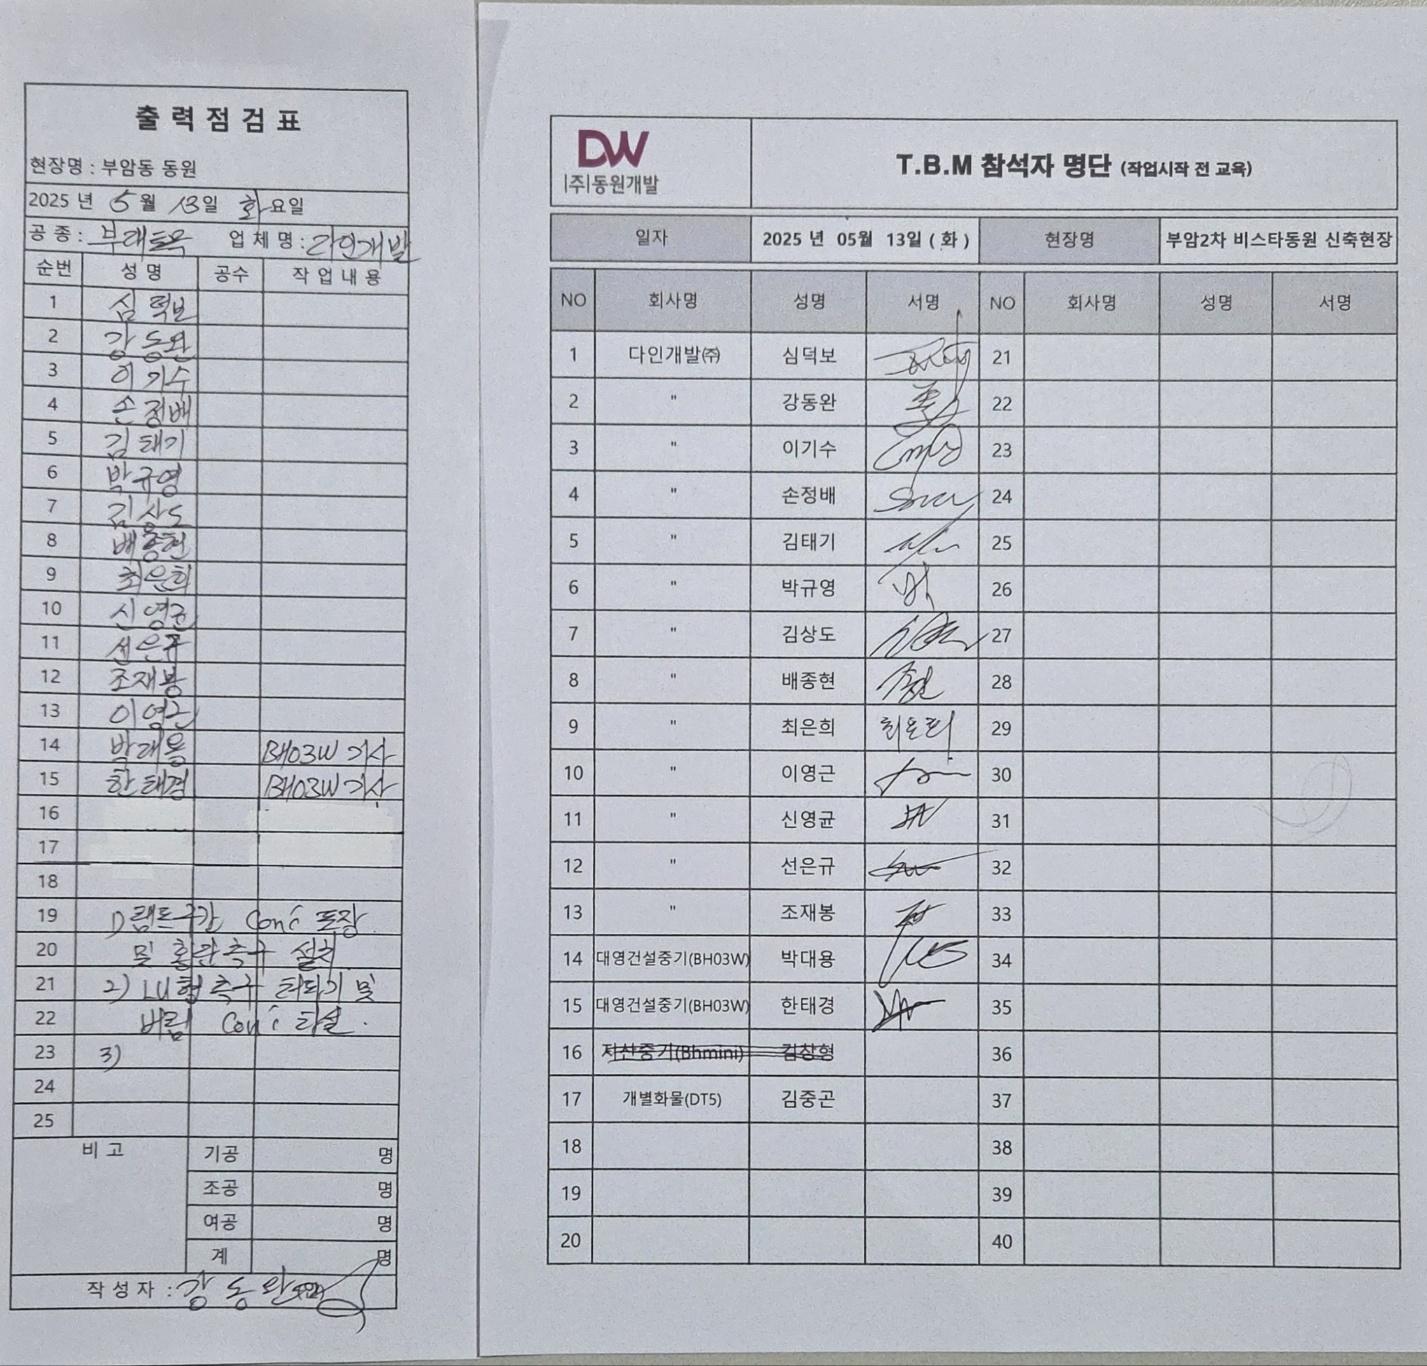 출력점검표
현장명 : 부암동 동원
2025 년 5 월 13일 화요일
공 종 : 부대토목 업 체 명 : 다인개발
순번 성 명 공수 작 업 내 용
1 심덕보
2 강동완
3 이기수
4 손정배
5 김태기
6 박규영
7 김상도
8 배종현
9 최은희
10 신영균
11 선은규
12 조재봉
13 이영근
14 박대용 BH03W 기사
15 한태경 BH03W 기사
16
17
18
19 1) 램프구간 Con'c 포장
20 및 횡단측구 설치
21 2) LU형측구 터파기 및
22 버림 Con'c 타설.
23 3)
24
25
비 고 기공 명
조공 명
여공 명
계 명
작 성 자 : 강동완
DW
(주)동원개발
T.B.M 참석자 명단 (작업시작 전 교육)
일자 2025 년 05월 13일 ( 화 ) 현장명 부암2차 비스타동원 신축현장
NO 회사명 성명 서명 NO 회사명 성명 서명
1 다인개발㈜ 심덕보 21
2 " 강동완 22
3 " 이기수 23
4 " 손정배 24
5 " 김태기 25
6 " 박규영 26
7 " 김상도 27
8 " 배종현 28
9 " 최은희 최은희 29
10 " 이영근 30
11 " 신영균 31
12 " 선은규 32
13 " 조재봉 33
14 대영건설중기(BH03W) 박대용 34
15 대영건설중기(BH03W) 한태경 35
16 지산중기(Bhmini) 김창형 36
17 개별화물(DT5) 김중곤 37
18 38
19 39
20 40